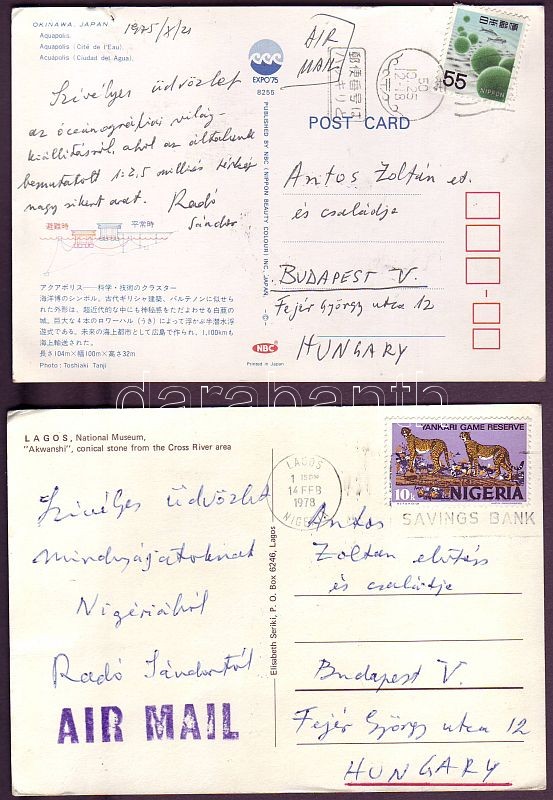 OKINAWA, JAPAN
Aquapolis.
Aquapolis (Cité de l'Eau).
Acuápolis (Ciudad del Agua).
1975/X/21
EXPO'75
8256
AIR
MAIL
日本郵便
55
NIPPON
POST CARD
Szívélyes üdvözlet
az óceánográfiai világ-
kiállításról, ahol az általunk
bemutatott 1:2,5 milliós térkép
nagy sikert arat. Radó
Sándor
避難時
平常時
アクアポリス——科学・技術のクラスター
海洋博のシンボル。古代ギリシャ建築、パルテノンに似せら
れた外形は、超近代的な中にも神秘感をただよわせる白亜の
城。巨大な4本のロワーハル(うき)によって浮かぶ半潜水浮
遊式である。未来の海上都市として広島で作られ、1,100kmも
海上輸送された。
長さ104m×幅100m×高さ32m
Photo: Toshiaki Tanji
PUBLISHED BY NBC (NIPPON BEAUTY COLOUR) INC., JAPAN.
NBC
Printed in Japan
Antos Zoltán
és családja
BUDAPEST V.
Fejér György utca 12
HUNGARY
darabanth
LAGOS, National Museum,
"Akwanshi", conical stone from the Cross River area
LAGOS
14 FEB
1978
NIGERIA
YANKARI GAME RESERVE
10k
NIGERIA
SAVINGS BANK
Szívélyes üdvözlet
mindnyájatoknak
Nigériából
Radó Sándortól
AIR MAIL
Elisabeth Seriki, P. O. Box 6246, Lagos
Antos
Zoltán
és családja
Budapest V.
Fejér György utca 12
HUNGARY